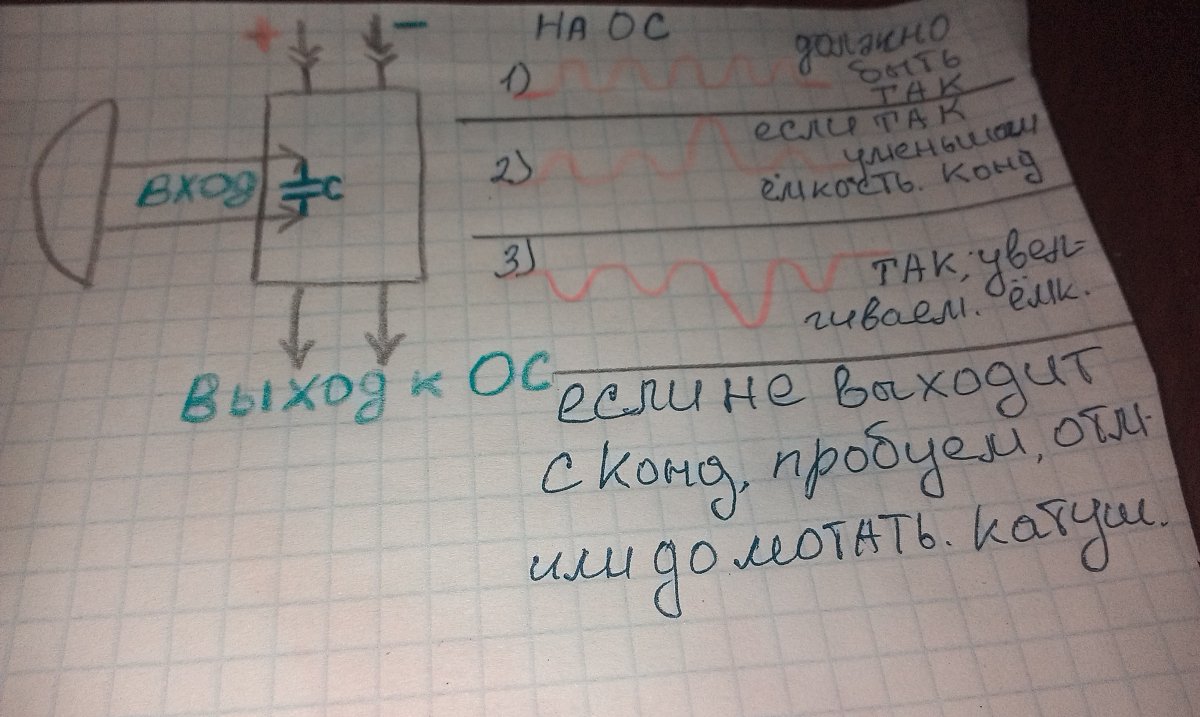 + −
ВХОД
С
ВЫХОД к ОС
НА ОС
1) должно
быть
ТАК
2) если ТАК
уменьшаем
ёмкость. конд
3) ТАК; увел=
чиваем. ёмк.
если не выходит
с конд, пробуем, отм-
или до мотать. катуш.